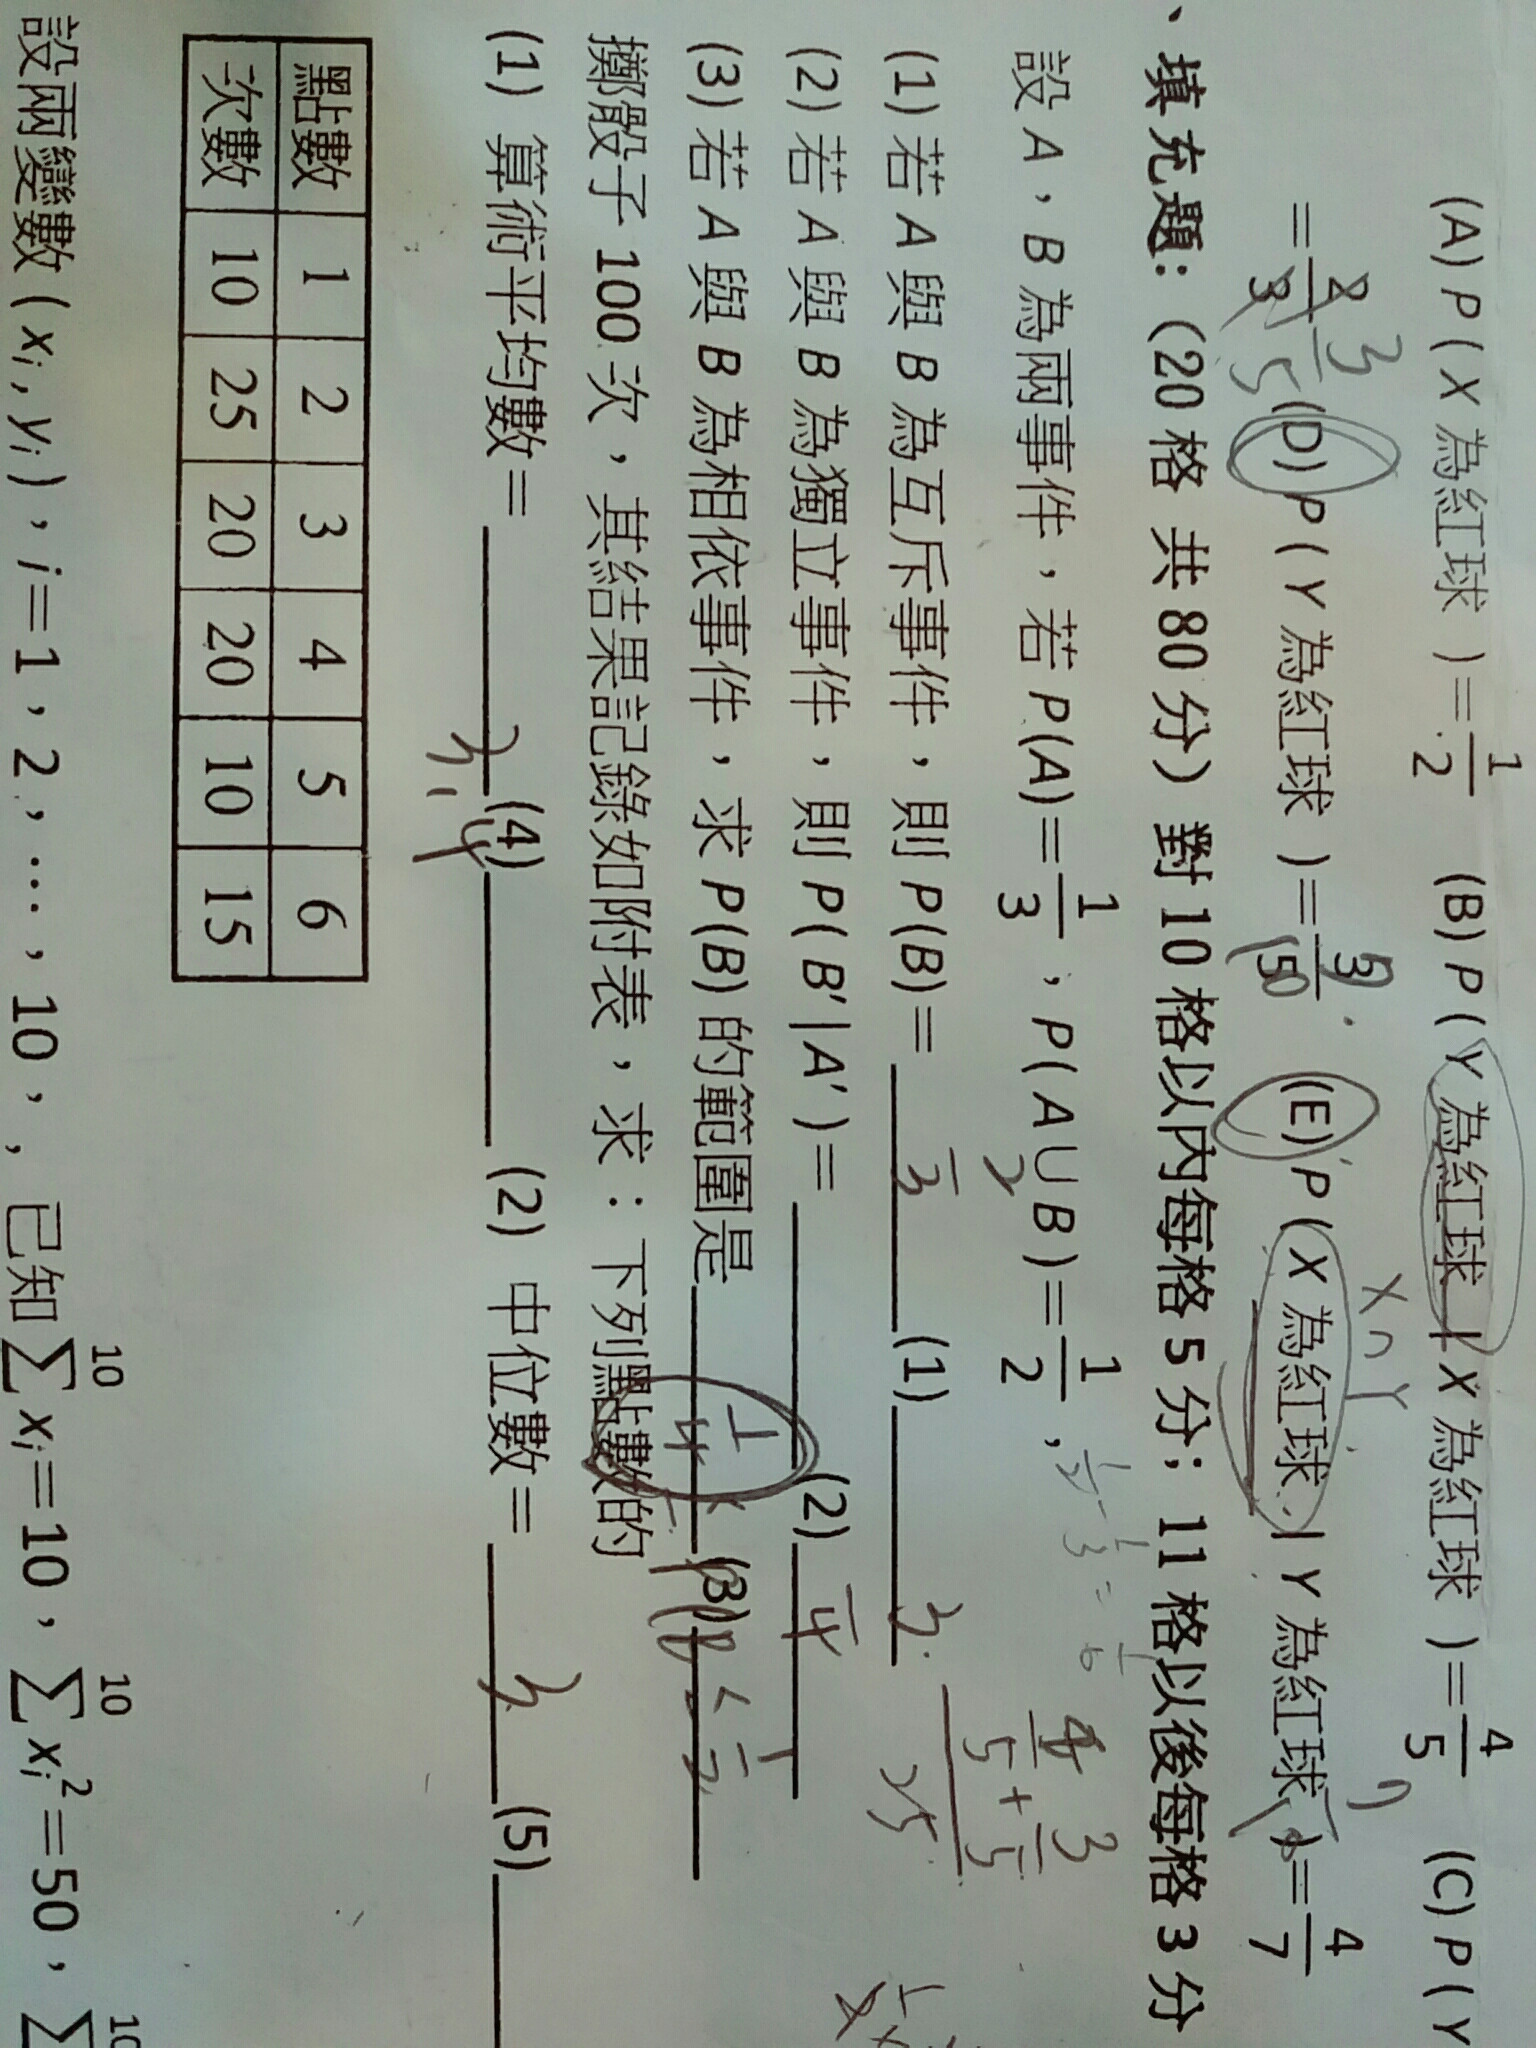 (A) P ( X 為紅球 ) = 1/2 (B) P ( Y 為紅球 | X 為紅球 ) = 4/5 (C) P ( Y
= 3/5 (D) P ( Y 為紅球 ) = (E) P ( X 為紅球 | Y 為紅球 ) = 4/7
X ∩ Y
、填充題:(20 格 共 80 分) 對 10 格以內每格 5 分;11 格以後每格 3 分
設 A,B 為兩事件,若 P(A) = 1/3,P(A∪B) = 1/2,
1/2 - 1/3 = 1/6
(1) 若 A 與 B 為互斥事件,則 P(B) = (1)
(2) 若 A 與 B 為獨立事件,則 P( B' | A' ) = (2)
(3) 若 A 與 B 為相依事件,求 P(B) 的範圍是 (3)
擲骰子 100 次,其結果記錄如附表,求:下列點數的
(1) 算術平均數= 3.4 (4) (2) 中位數= 3 (5)
點數 1 2 3 4 5 6
次數 10 25 20 20 10 15
設兩變數 ( xi , yi ),i=1,2,⋯,10,,已知 10 Σ xi=10,10 Σ xi²=50,10 Σ